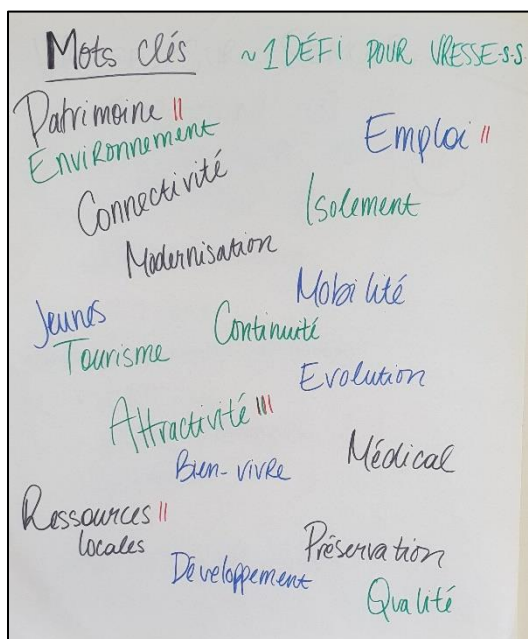 Mots clés ~ 1 DÉFI POUR VRESSE-S.S.
Patrimoine II
Environnement
Emploi II
Connectivité
Isolement
Modernisation
Mobilité
Jeunes
Continuité
Tourisme
Evolution
Attractivité III
Bien-vivre
Médical
Ressources II
locales
Préservation
Développement
Qualité